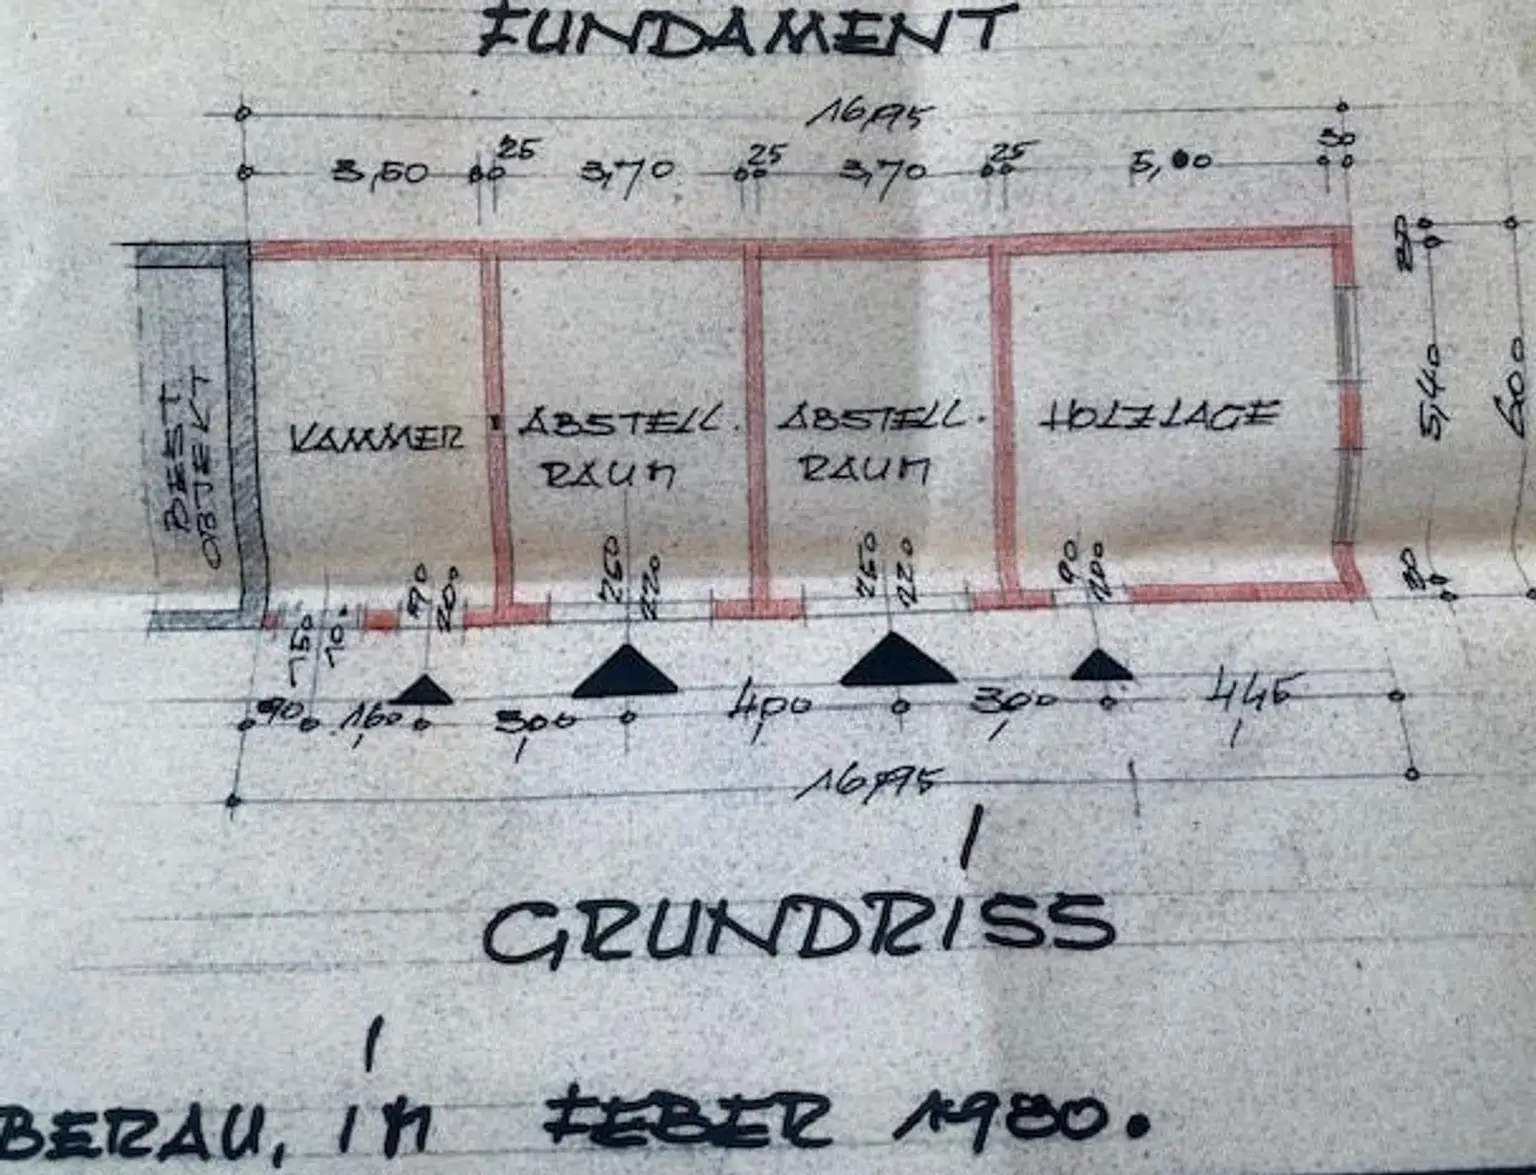 FUNDAMENT
16,95
3,50 25 3,70 25 3,70 25 5,00 30
30
5,40
30
600
BEST.
OBJEKT
KAMMER
ABSTELL.
RAUM
ABSTELL.
RAUM
HOLZLAGE
150
70.
90
200
260
220
260
220
90
200
90 1,60 3,00 4,00 3,00 4,45
16,95
GRUNDRISS
BERAU, IM FEBER 1980.